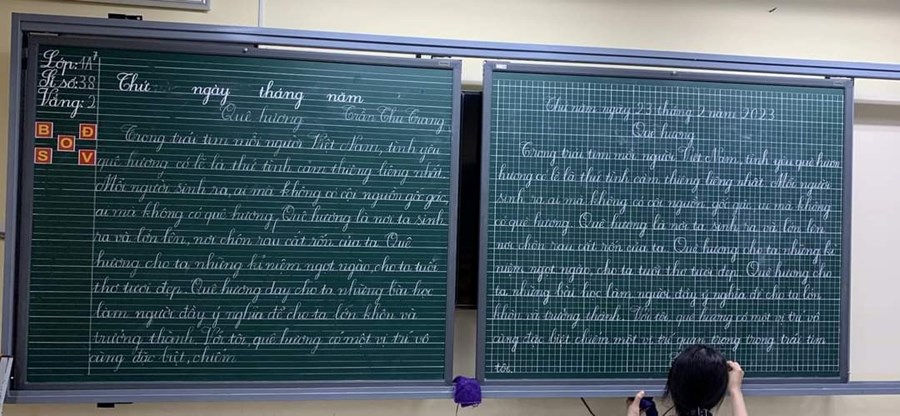 Lớp: 1A7
Sĩ số: 38
Vắng: 2
B Đ
O
S V
Thứ ngày tháng năm
Quê hương Trần Thu Trang
Trong trái tim mỗi người Việt Nam, tình yêu
quê hương có lẽ là thứ tình cảm thiêng liêng nhất.
Mỗi người sinh ra, ai mà không có cội nguồn gốc gác,
ai mà không có quê hương. Quê hương là nơi ta sinh
ra và lớn lên, nơi chôn rau cắt rốn của ta. Quê
hương cho ta những kỉ niệm ngọt ngào, cho ta tuổi
thơ tươi đẹp. Quê hương dạy cho ta những bài học
làm người đầy ý nghĩa để cho ta lớn khôn và
trưởng thành. Với tôi, quê hương có một vị trí vô
cùng đặc biệt, chiếm
Thứ năm ngày 23 tháng 2 năm 2023
Quê hương
Trong trái tim mỗi người Việt Nam, tình yêu quê hươn
hương có lẽ là thứ tình cảm thiêng liêng nhất. Mỗi người
sinh ra, ai mà không có cội nguồn, gốc gác, ai mà không
có quê hương. Quê hương là nơi ta sinh ra và lớn lên
nơi chôn rau cắt rốn của ta. Quê hương cho ta những kỉ
niệm ngọt ngào, cho ta tuổi thơ tươi đẹp. Quê hương cho
ta những bài học làm người đầy ý nghĩa để cho ta lớn
khôn và trưởng thành. Với tôi, quê hương có một vị trí vô
cùng đặc biệt chiếm một vị trí quan trọng trong trái tim
tôi.